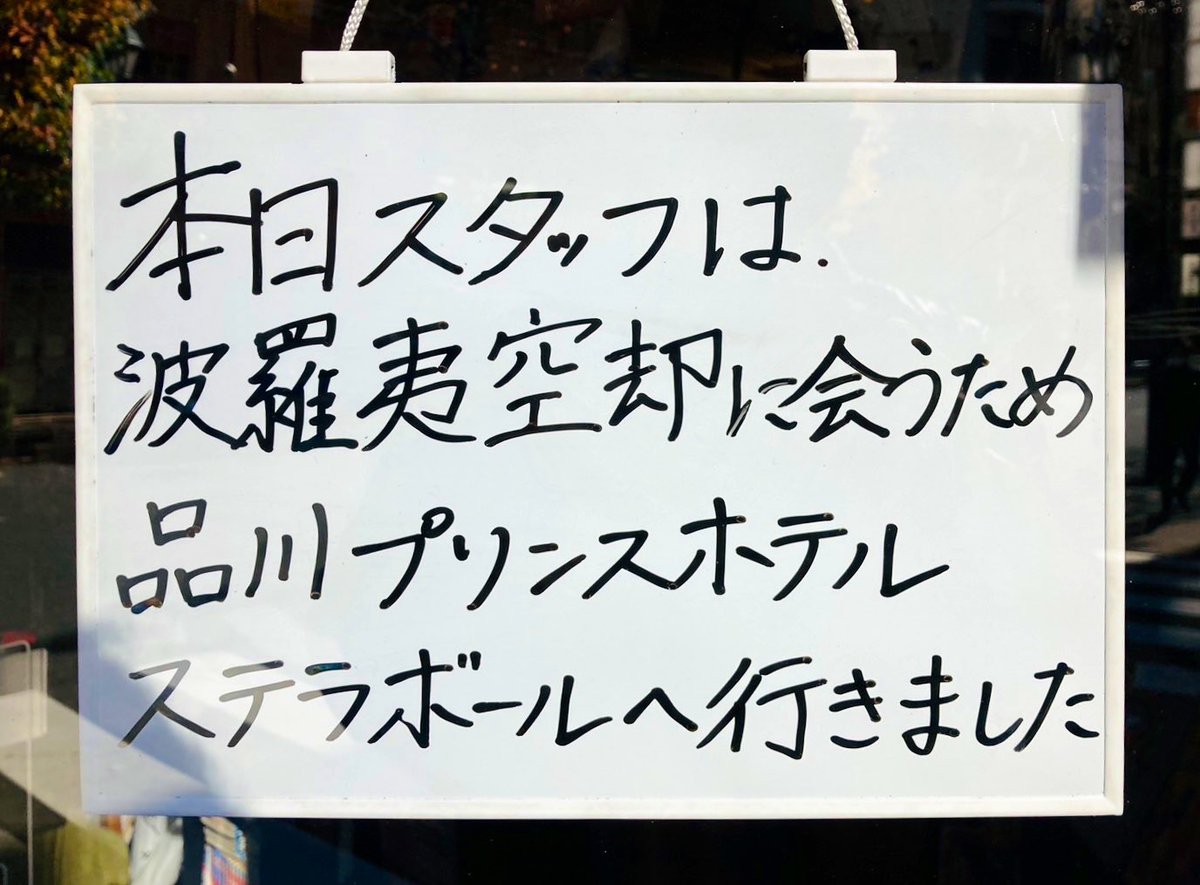 本日スタッフは.
波羅夷空却に会うため
品川プリンスホテル
ステラボールへ行きました